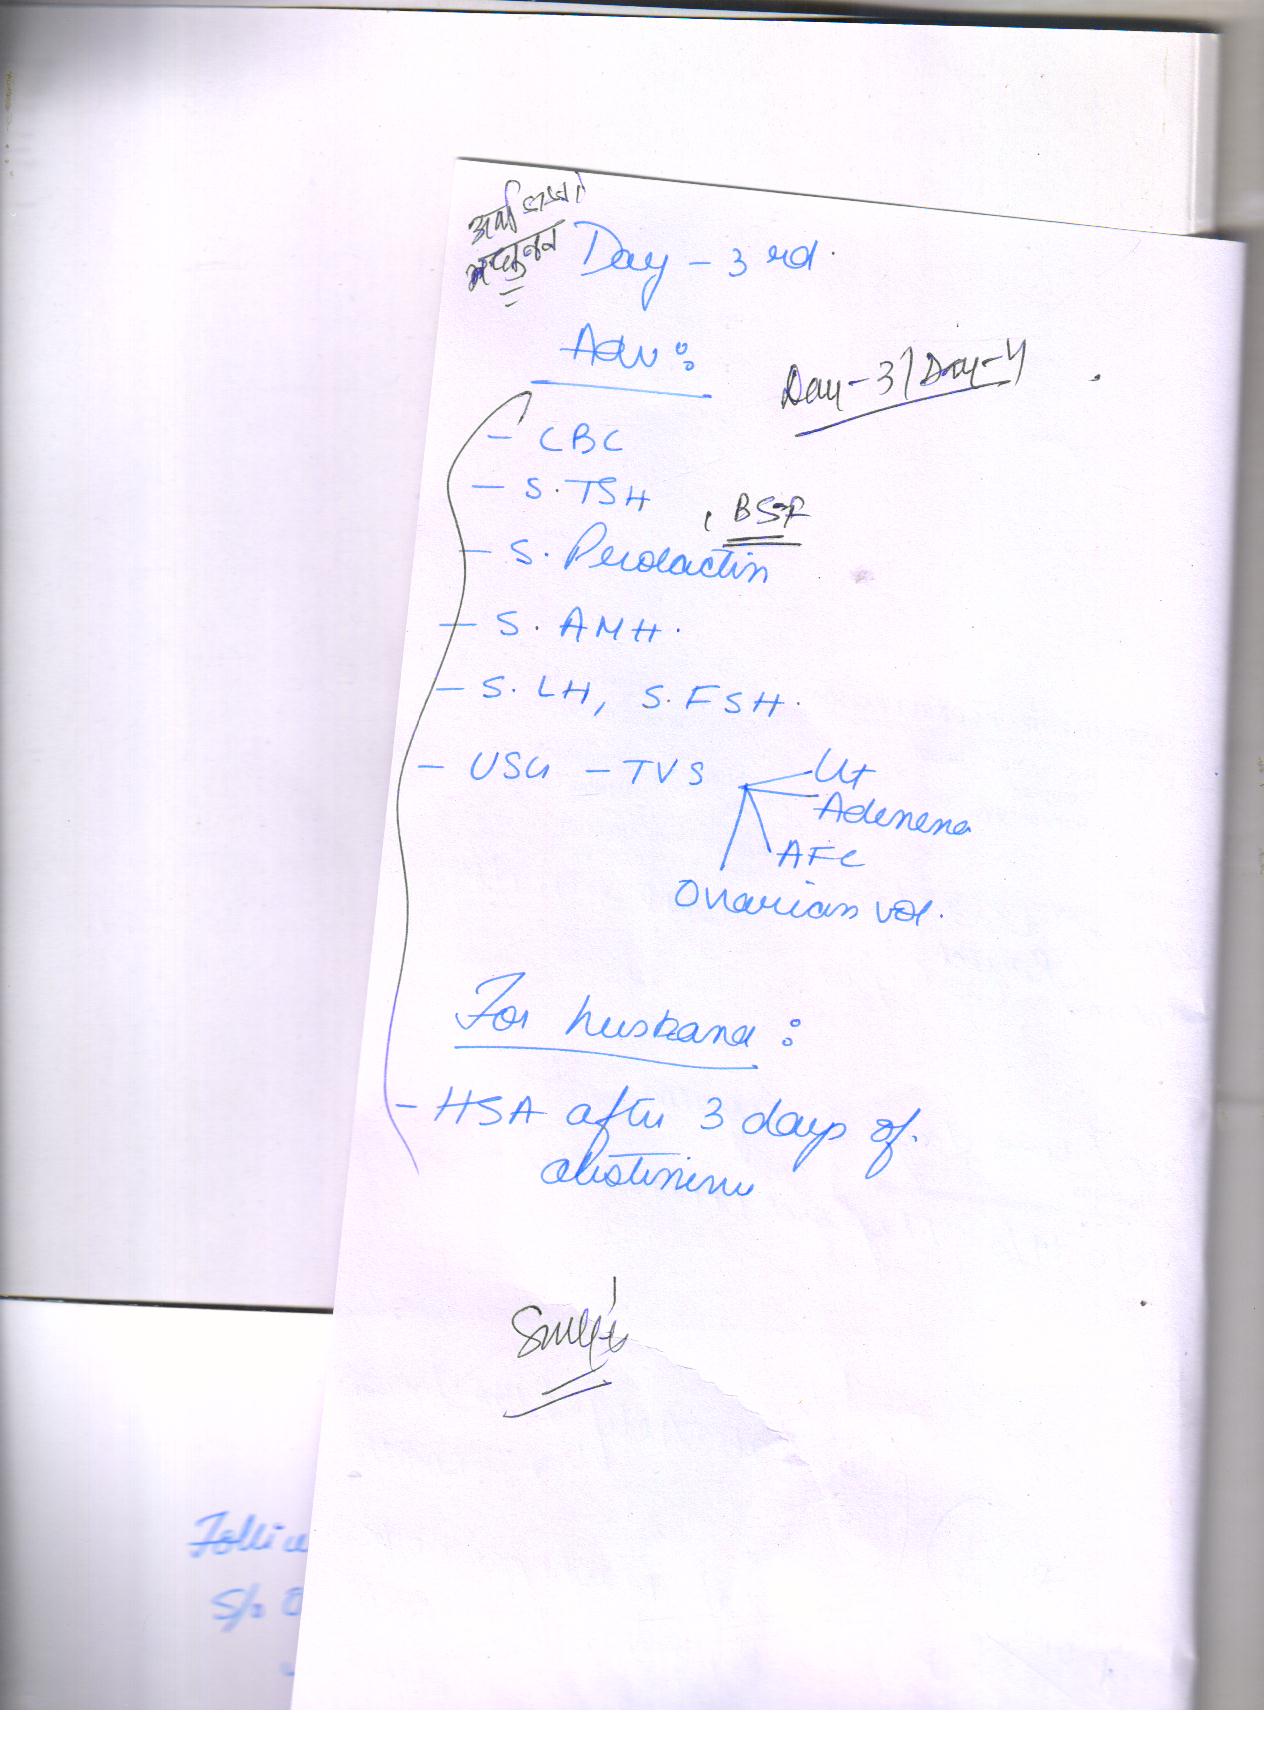 Day - 3rd.
Adv:
Day-3/Day-4
- CBC
- S.TSH
, BSF
- S. Prolactin
- S. AMH.
- S. LH, S. FSH.
- USG - TVS
Ut
Adenexa
AFC
Ovarian vol.
For husband:
- HSA after 3 days of.
abstinence
S/o